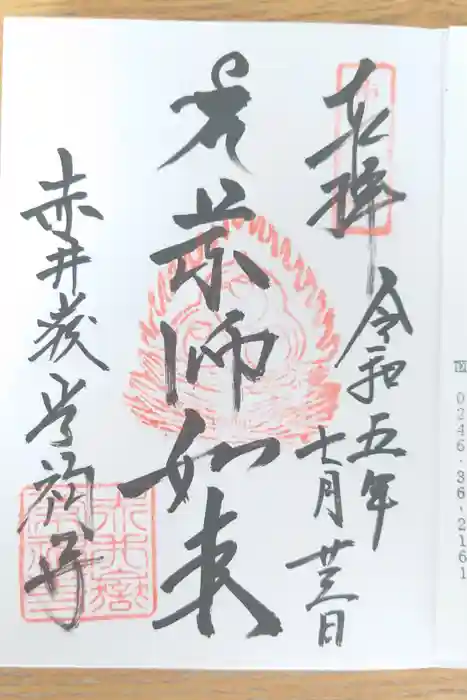 奉拝
令和五年
七月廿三日
薬師如来
赤井嶽常福寺
0246・36・2161